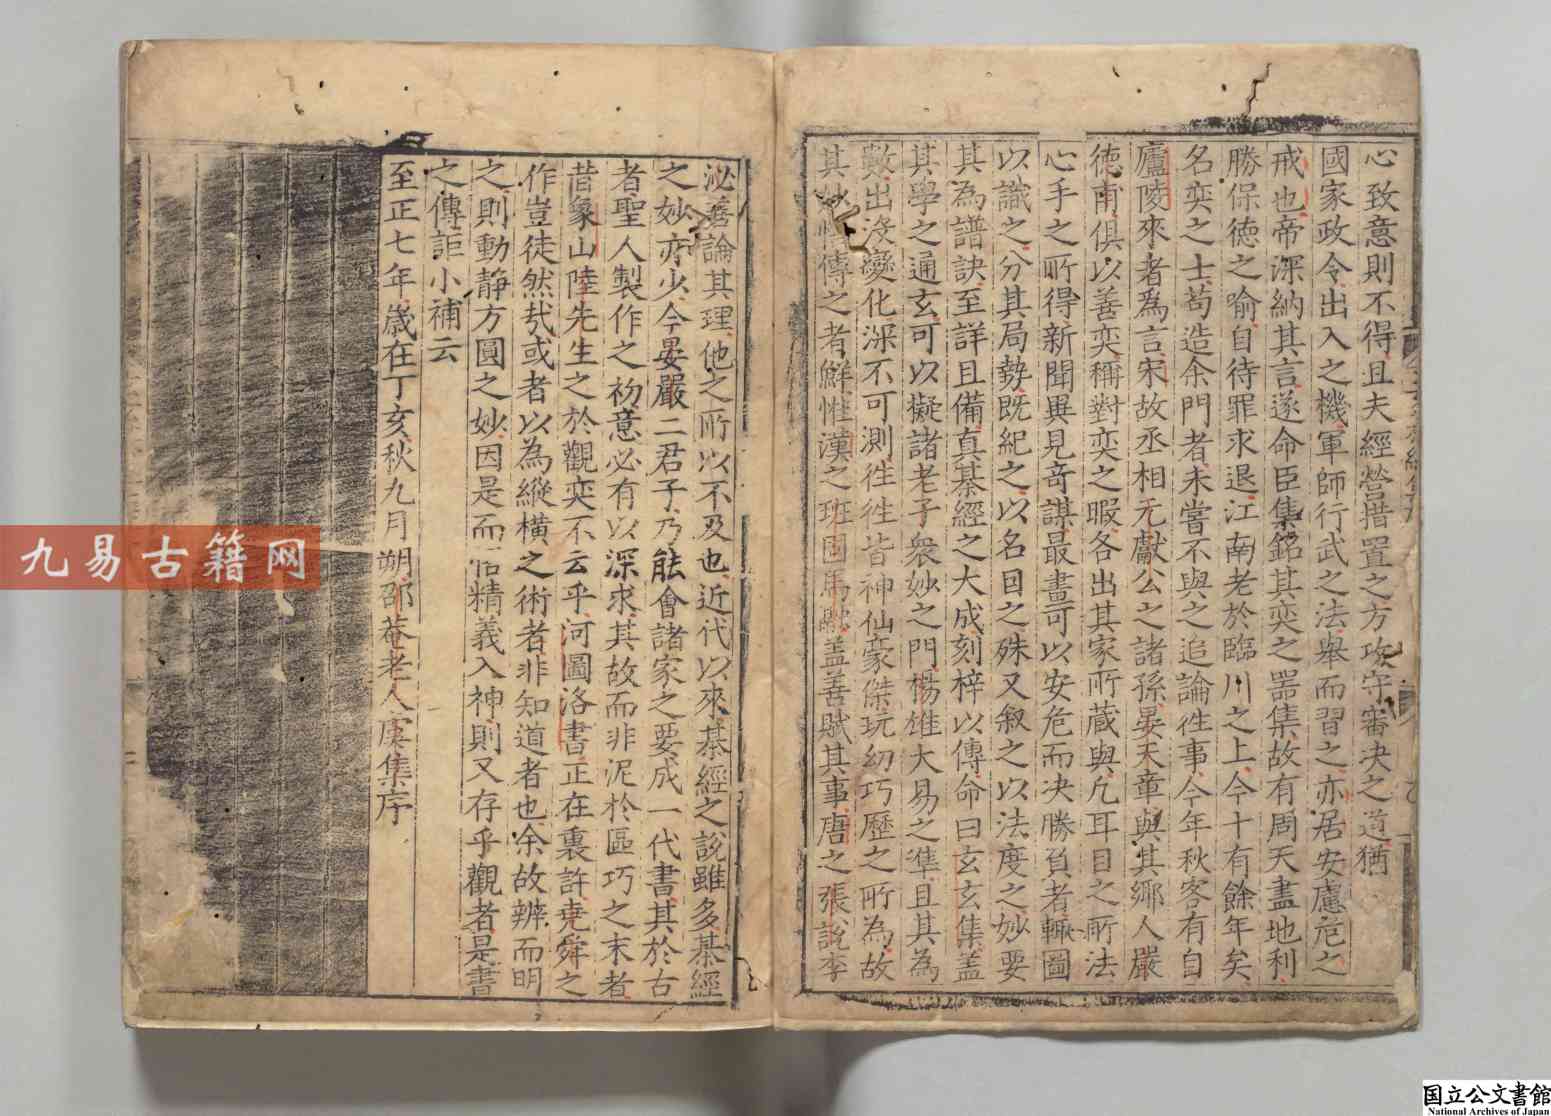 心致意則不得且夫經營措置之方攻守審决之道猶
國家政令出入之機軍師行武之法舉而習之亦居安慮危之
戒也帝深納其言遂命臣集銘其奕之器集故有周天畫地利
勝保徳之喻自待罪求退江南老於臨川之上今十有餘年矣
名奕之士苟造余門者未嘗不與之追論徃事今年秋客有自
廬陵來者為言宋故丞相元獻公之諸孫晏天章與其鄉人嚴
徳甫俱以善奕稱對奕之暇各出其家所蔵與凢耳目之所法
心手之所得新聞異見竒謀最畫可以安危而决勝負者輙圖
以識之分其局勢既紀之以名目之殊又叙之以法度之妙要
其為譜訣至詳且備真棊經之大成刻梓以傳命曰玄玄集盖
其學之通玄可以擬諸老子衆妙之門楊雄大易之準且其為
數出没變化深不可測徃徃皆神仙豪傑玩幻巧歷之所為故
其傳之者鮮惟漢之班固馬融盖善賦其事唐之張說李
泌善論其理他之所以不及也近代以來棊經之說雖多棊經
之妙亦少今晏嚴二君子乃能會諸家之要成一代書其於古
者聖人製作之初意必有以深求其故而非泥於區巧之末者
昔象山陸先生之於觀奕不云乎河圖洛書正在裏許尭舜之
作豈徒然㢤或者以為縱横之術者非知道者也余故辨而明
之則動静方圓之妙因是而悟精義入神則又存乎觀者是書
之傳詎小補云
至正七年歳在丁亥秋九月朔邵菴老人虞集序
九易古籍网
国立公文書館
National Archives of Japan